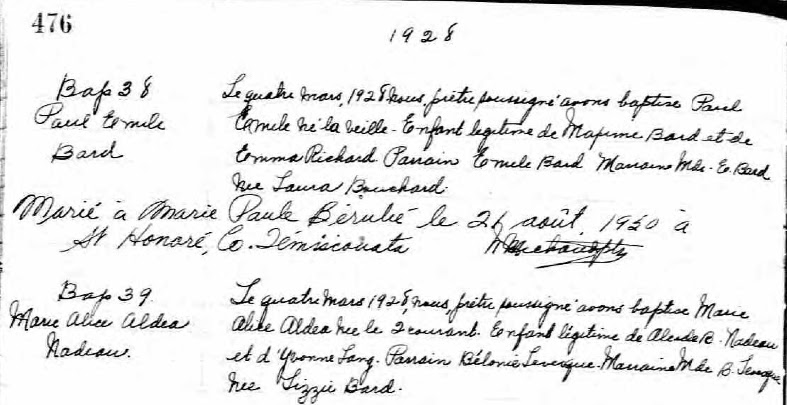 476
1928
Bap 38
Paul Emile
Bard
Le quatre mars, 1928 nous, prêtre soussigné avons baptise Paul
Emile né la veille - Enfant legitime de Maxime Bard et de
Emma Richard Parrain Emile Bard Marraine Mde. E. Bard
nee Laura Bouchard.
Marié à Marie Paule Bérubé le 26 août, 1950 à
St Honoré, Co. Témiscouata
Bap 39.
Marie Alice Aldea
Nadeau.
Le quatre mars 1928, nous, prêtre soussigné avons baptise Marie
Alice Aldea nee le 2 courant. Enfant légitime de R. Nadeau
et d'Yvonne Lang. Parrain Bélonie Levesque. Marraine Mde B. Levesque
nee Lizzie Bard.